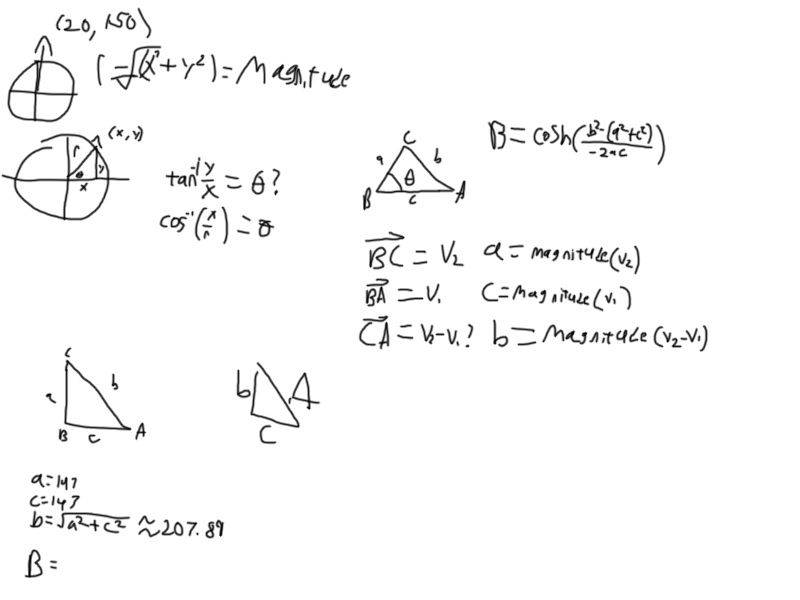 (20, 150)
r = √(x²+y²) = Magnitude
(x, y)
r
θ
y
x
tan⁻¹ y/x = θ?
cos⁻¹(x/r) = θ
C
a
b
θ
B
c
A
B = cosh((b²-(a²+c²))/(-2ac))
BC = V₂ a = magnitude(v₂)
BA = V₁ C = magnitude(v₁)
CA = V₂-V₁? b = Magnitude(v₂-v₁)
C
a
b
B
c
A
b
A
C
a=147
c=147
b=√a²+c² ≈207.89
B =